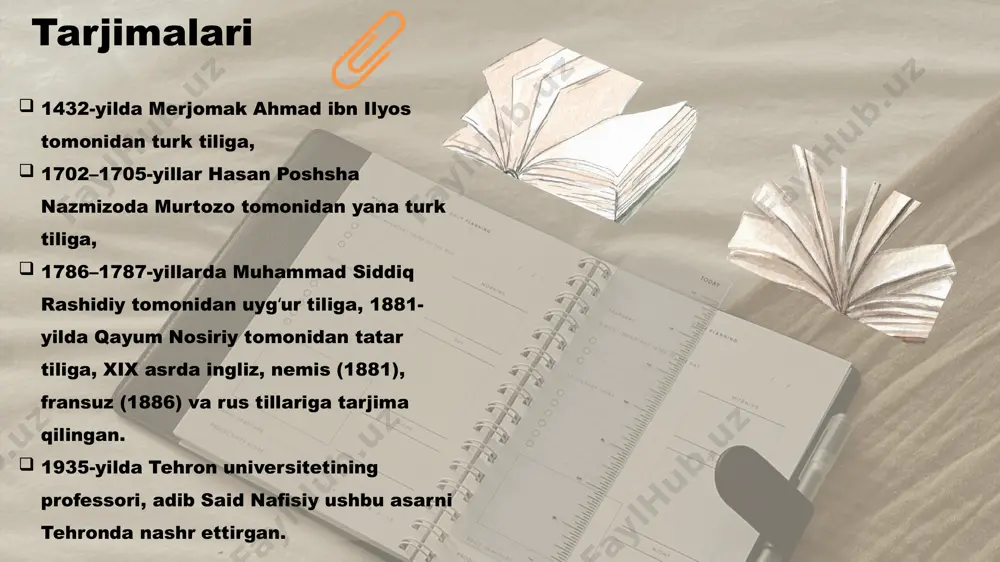 Tarjimalari
❑ 1432-yilda Merjomak Ahmad ibn Ilyos
tomonidan turk tiliga,
❑ 1702–1705-yillar Hasan Poshsha
Nazmizoda Murtozo tomonidan yana turk
tiliga,
❑ 1786–1787-yillarda Muhammad Siddiq
Rashidiy tomonidan uyg'ur tiliga, 1881-
yilda Qayum Nosiriy tomonidan tatar
tiliga, XIX asrda ingliz, nemis (1881),
fransuz (1886) va rus tillariga tarjima
qilingan.
❑ 1935-yilda Tehron universitetining
professori, adib Said Nafisiy ushbu asarni
Tehronda nashr ettirgan.
FaylHub.uz
FaylHub.uz
FaylHub.uz
FaylHub.uz
FaylHub.uz
TODAY